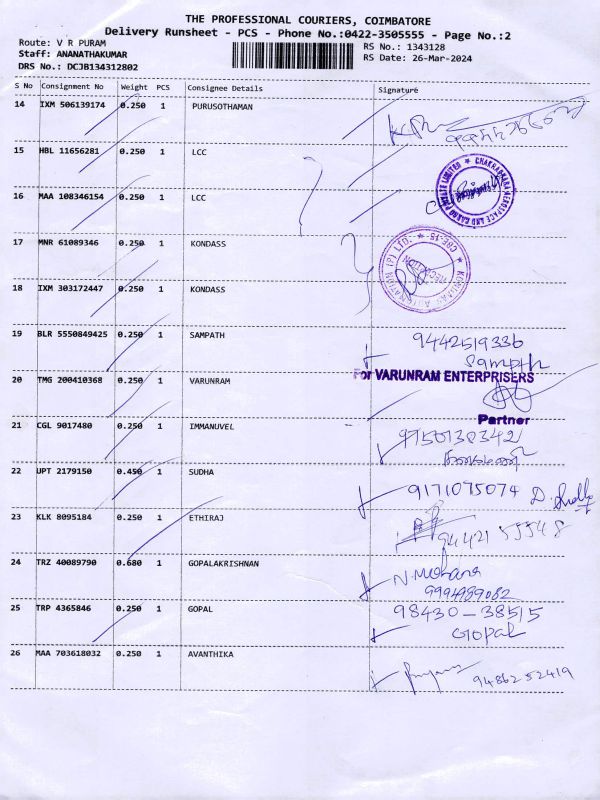 THE PROFESSIONAL COURIERS, COIMBATORE
Delivery Runsheet - PCS - Phone No.:0422-3505555 - Page No.:2
Route: V R PURAM
RS No.: 1343128
Staff: ANANATHAKUMAR
RS Date: 26-Mar-2024
DRS No.: DCJB134312802
S No Consignment No Weight PCS Consignee Details Signature
14 IXM 506139174 0.250 1 PURUSOTHAMAN
15 HBL 11656281 0.250 1 LCC
CHAKRADHARA AEROSPACE AND CARGO PRIVATE LIMITED
16 MAA 108346154 0.250 1 LCC
17 MNR 61089346 0.250 1 KONDASS
18 IXM 303172447 0.250 1 KONDASS
19 BLR 5550849425 0.250 1 SAMPATH 9442519336
Sampth
20 TMG 200410368 0.250 1 VARUNRAM For VARUNRAM ENTERPRISERS
Partner
21 CGL 9017480 0.250 1 IMMANUVEL 9750138342
22 UPT 2179150 0.450 1 SUDHA 9171075074 D. Sudha
23 KLK 8095184 0.250 1 ETHIRAJ 94421 55548
24 TRZ 40089790 0.680 1 GOPALAKRISHNAN N. Mohana
9994989082
25 TRP 4365846 0.250 1 GOPAL 98430-38515
Gopal
26 MAA 703618032 0.250 1 AVANTHIKA 9486252419